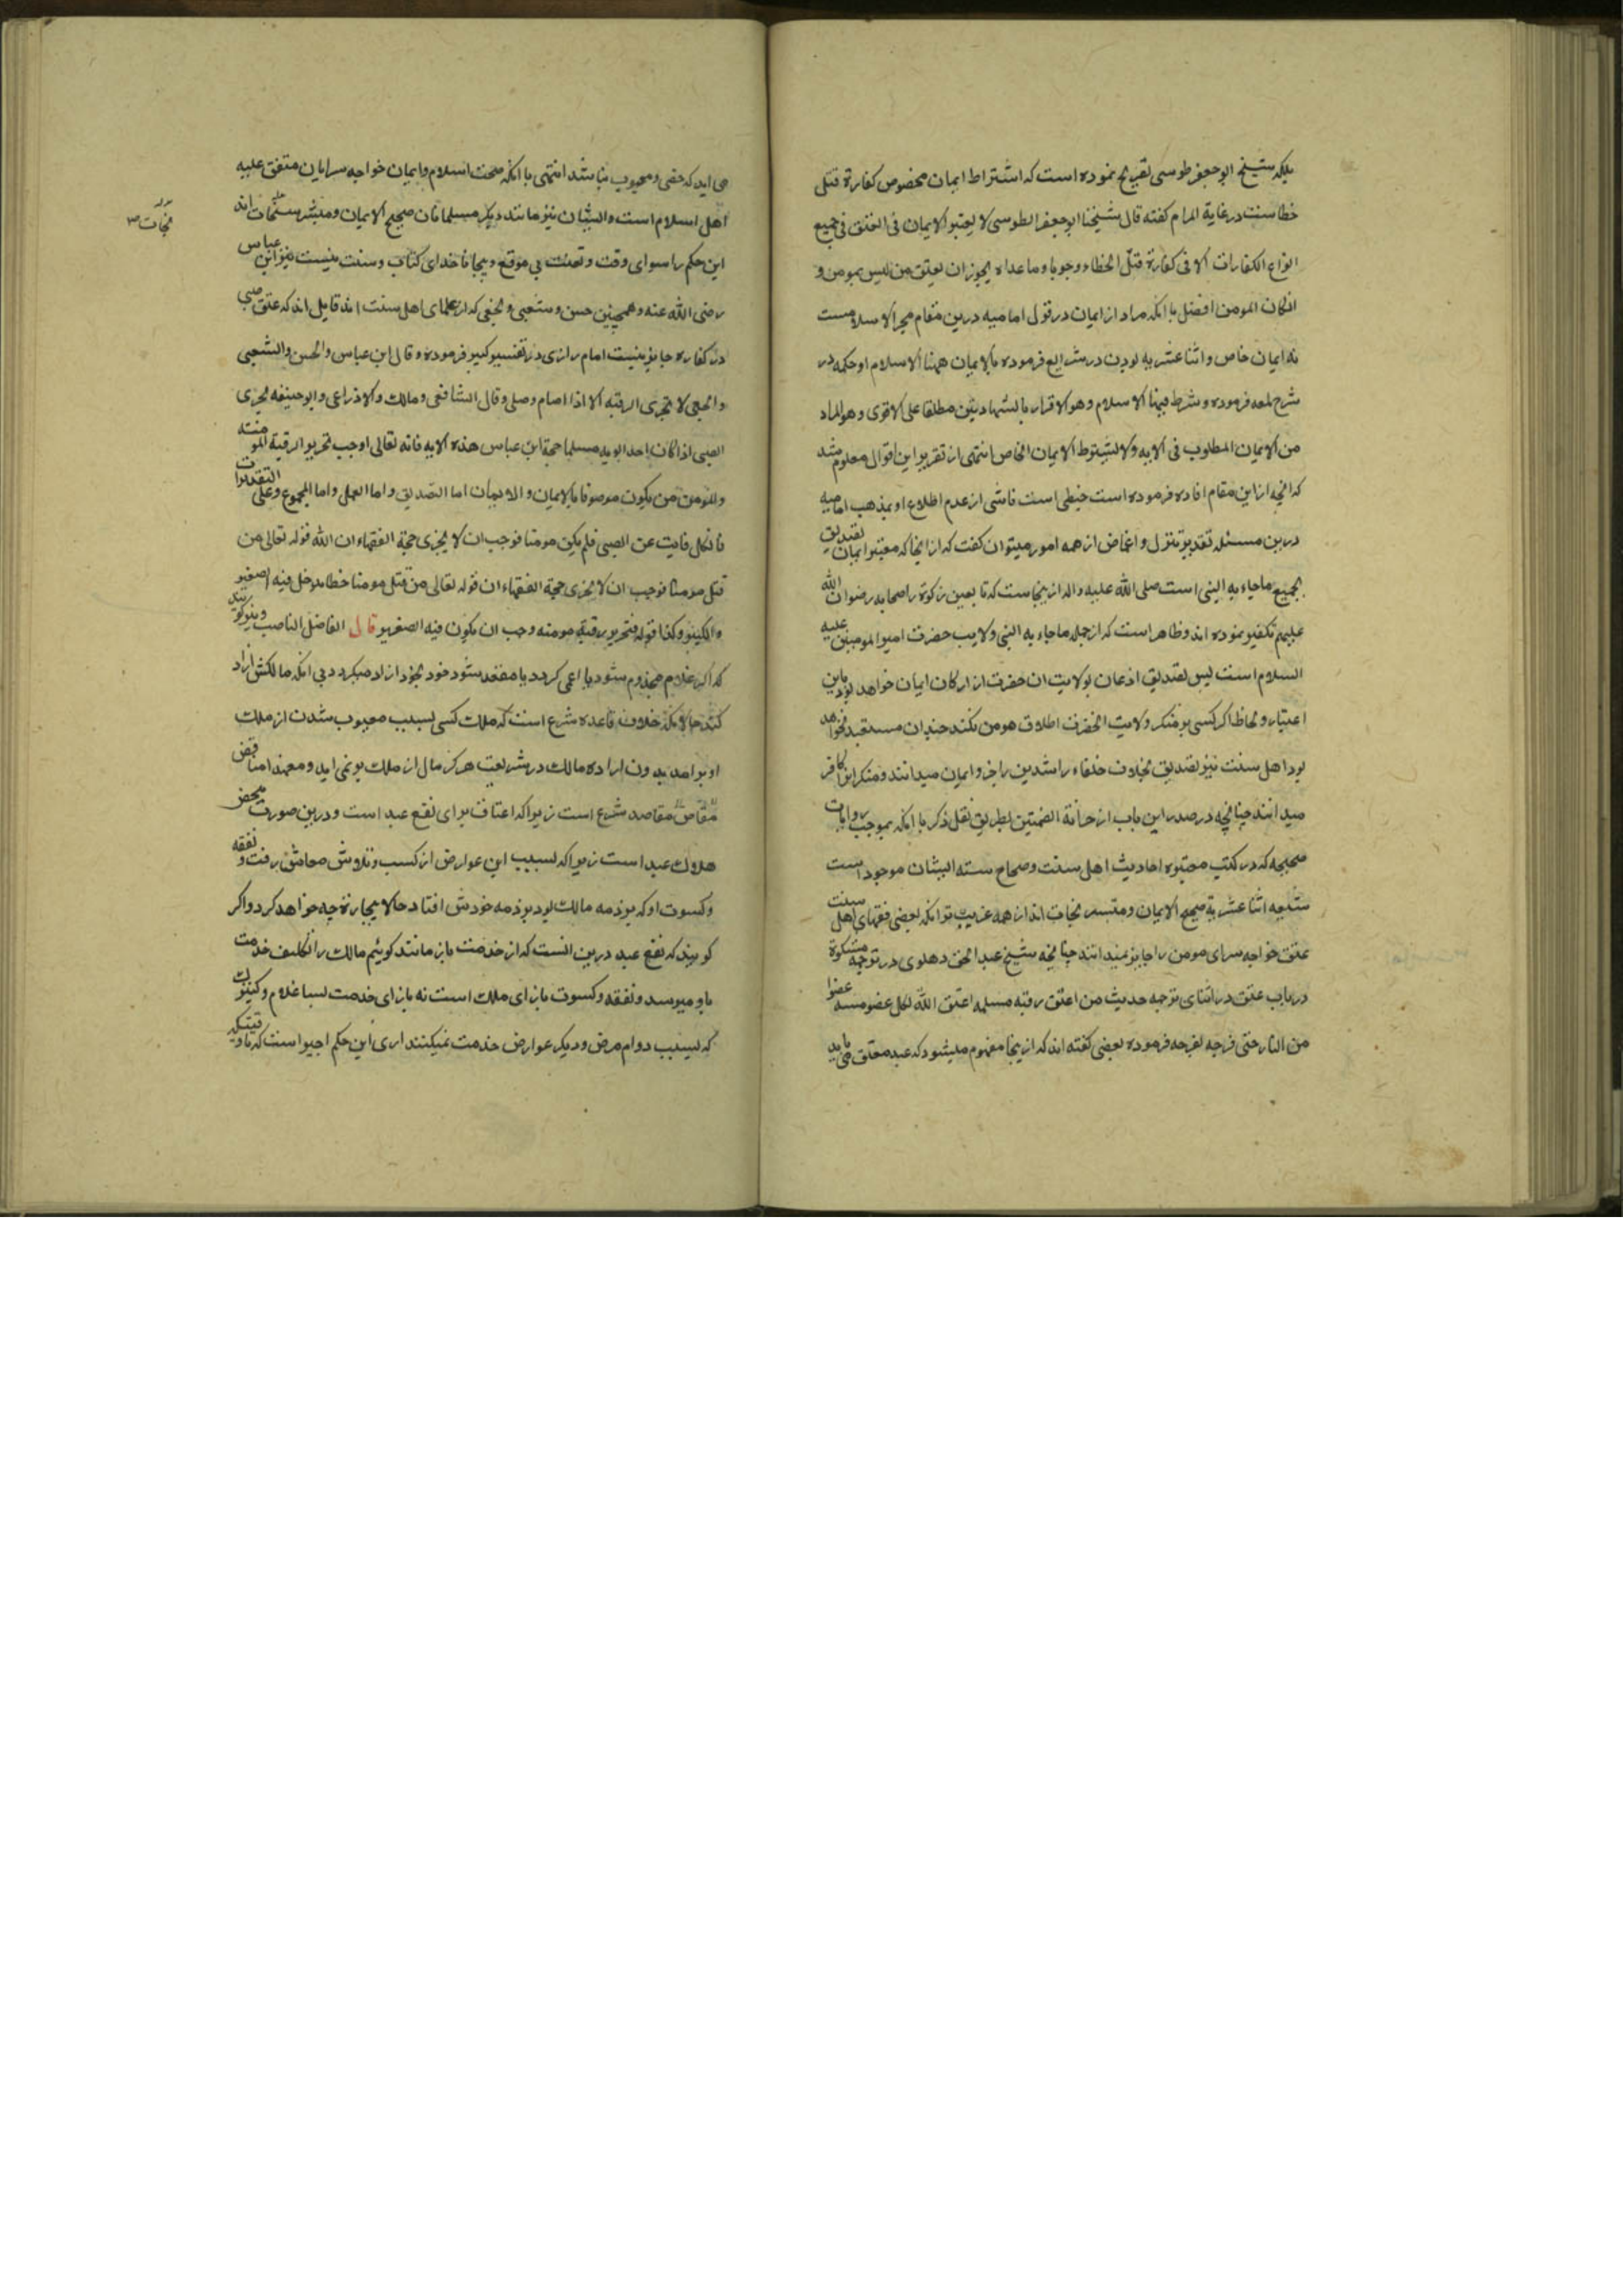 بلکه شیخ ابو جعفر طوسی تصریح نموده است که اشتراط ایمان مخصوص کفارة قتل
خطاست در غایة المرام کفته قال شیخنا ابو جعفر الطوسی لا یعتبر الایمان فی العتق فی جمیع
انواع الکفارات الا فی کفارة قتل الخطاء وجوبا و ما عداه یجوز ان یعتق من لیس بمومن و
انکان المومن افضل با انکه مراد از ایمان در قول امامیه درین مقام مجرد الاسلامست
نه ایمان خاص و اثنا عشریه بودن در شرایع فرموده بالایمان همنا الاسلام او حکمه در
شرح لمعه فرموده و شرط فیهنا الاسلام و هو الاقرار بالشهادتین مطلقا علی الاقوی و هو المراد
من الایمان المطلوب فی الایه ولا لیشترط الایمان الخاص انتهی از تقریر این اقوال معلوم شد
که انچه از این مقام افاده فرموده است خبطی است ناشی از عدم اطلاع او بمذهب امامیه
درین مسئله تقدیر تنزل و اغماض از همه امور میتوان کفت که از انجا که معتبر ایمان تصدیق
بجمیع ماجاء به النبی است صلی الله علیه و اله ازینجاست که تابعین زکوة را صحابه رضوان الله
علیهم تکفیر نموده اند و ظاهر است که از جمله ماجاء به النبی ولایت حضرت امیر المومنین علیه
السلام است پس تصدیق اذعان بولایت ان حضرت از ارکان ایمان خواهد بود باین
اعتبار و لحاظ اکر کسی بر منکر ولایت انحضرت اطلاق مومن نکند چندان مستبعد نخواهد
بود اهل سنت نیز تصدیق بخلافت خلفاء راشدین را جزو ایمان میدانند و منکر انرا کافر
میدانند چنانچه در صدر این باب از خزانة المفتین بطریق نقل ذکر با انکه بموجب روایات
صحیحه که در کتب معتبره احادیث اهل سنت و صحاح سته ایشان موجود است
شیعه اثنا عشریة صحیح الایمان و مبشر نجات اند از همه غریب تر انکه بعضی فقهای اهل سنت
عتق خواجه سرای مومن را جایز نمیدانند چنانچه شیخ عبد الحق دهلوی در ترجمه مشکوة
در باب عتق در اثنای ترجمه حدیث من اعتق رقبه مسلمه اعتق الله لکل عضو منه عضوا
من النار حتی فرجه لفرجه فرموده بعضی کفته اند که ازینجا مفهوم میشود که عبد معتق می باید
می اید که خصی و مجبوب نباشد انتهی با انکه صحت اسلام و ایمان خواجه سرایان متفق علیه
اهل اسلام است و ایشان نیز مانند دیکر مسلمانان صحیح الایمان و مبشر نجات اند
این حکم را سوای وقت و تعنت بی موقع و بیجا ماخذای کتاب و سنت نیست نیز ابن عباس
رضی الله عنه و همچنین حسن و شعبی و نخعی که از علمای اهل سنت اند قایل اند که عتق صبی
در کفاره جایز نیست امام رازی در تفسیر کبیر فرموده و قال ابن عباس و الحسن و الشعبی
و النخعی لا تجزی الرقبه الا اذا صام و صلی و قال الشافعی و مالک و الاوزاعی و ابو حنیفه یجزی
الصبی اذا کان احد ابویه مسلما حجة ابن عباس هذه الایه فانه تعالی اوجب تحریر الرقبة المومنه
و المومن من یکون موصوفا بالایمان و الایمان اما التصدیق و اما العمل و اما المجموع و علی التقدیرات
فالکل فایت عن الصبی فلم یکن مومنا فوجب ان لا یجزی حجة الفقهاء ان الله قوله تعالی من
قتل مومنا فوجب ان لا یجزی حجة الفقهاء ان قوله تعالی من قتل مومنا خطا یدخل فیه الصغیر
و الکبیر و کذا قوله فتحریر رقبة مومنه وجب ان یکون فیه الصغیر قال الفاضل الناصب و نیز کویند
که اکر غلام مجذوم شود یا اعمی کردد یا مقعد شود خود بخود ازاد میکردد بی انکه مالکش ازاد
کند حالانکه خلاف قاعده شرع است که ملک کسی بسبب معیوب شدن از ملک
او براید بدون اراده مالک در شریعت هرکز مال از ملک بر نمی اید و معهذا مناقض
مقاصد شرع است زیرا که اعتاق برای نفع عبد است و درین صورت محض
هلاک عبد است زیرا که بسبب این عوارض از کسب و تلاوش معاشش رفت و نفقه
و کسوت او که بر ذمه مالک بود بر ذمه خودش افتاد حالا بیچاره چه خواهد کرد و اکر
کویند که نفع عبد درین انست که از خدمت باز مانند کوئیم مالک را تکلیف خدمت
باو میرسد و نفقه و کسوت بازای ملک است نه بازای خدمت بسا غلام و کنیزک
که بسبب دوام مرض و دیکر عوارض خدمت نمیکنند اری این حکم اجیر است که تا وقتیکه
نجات ص